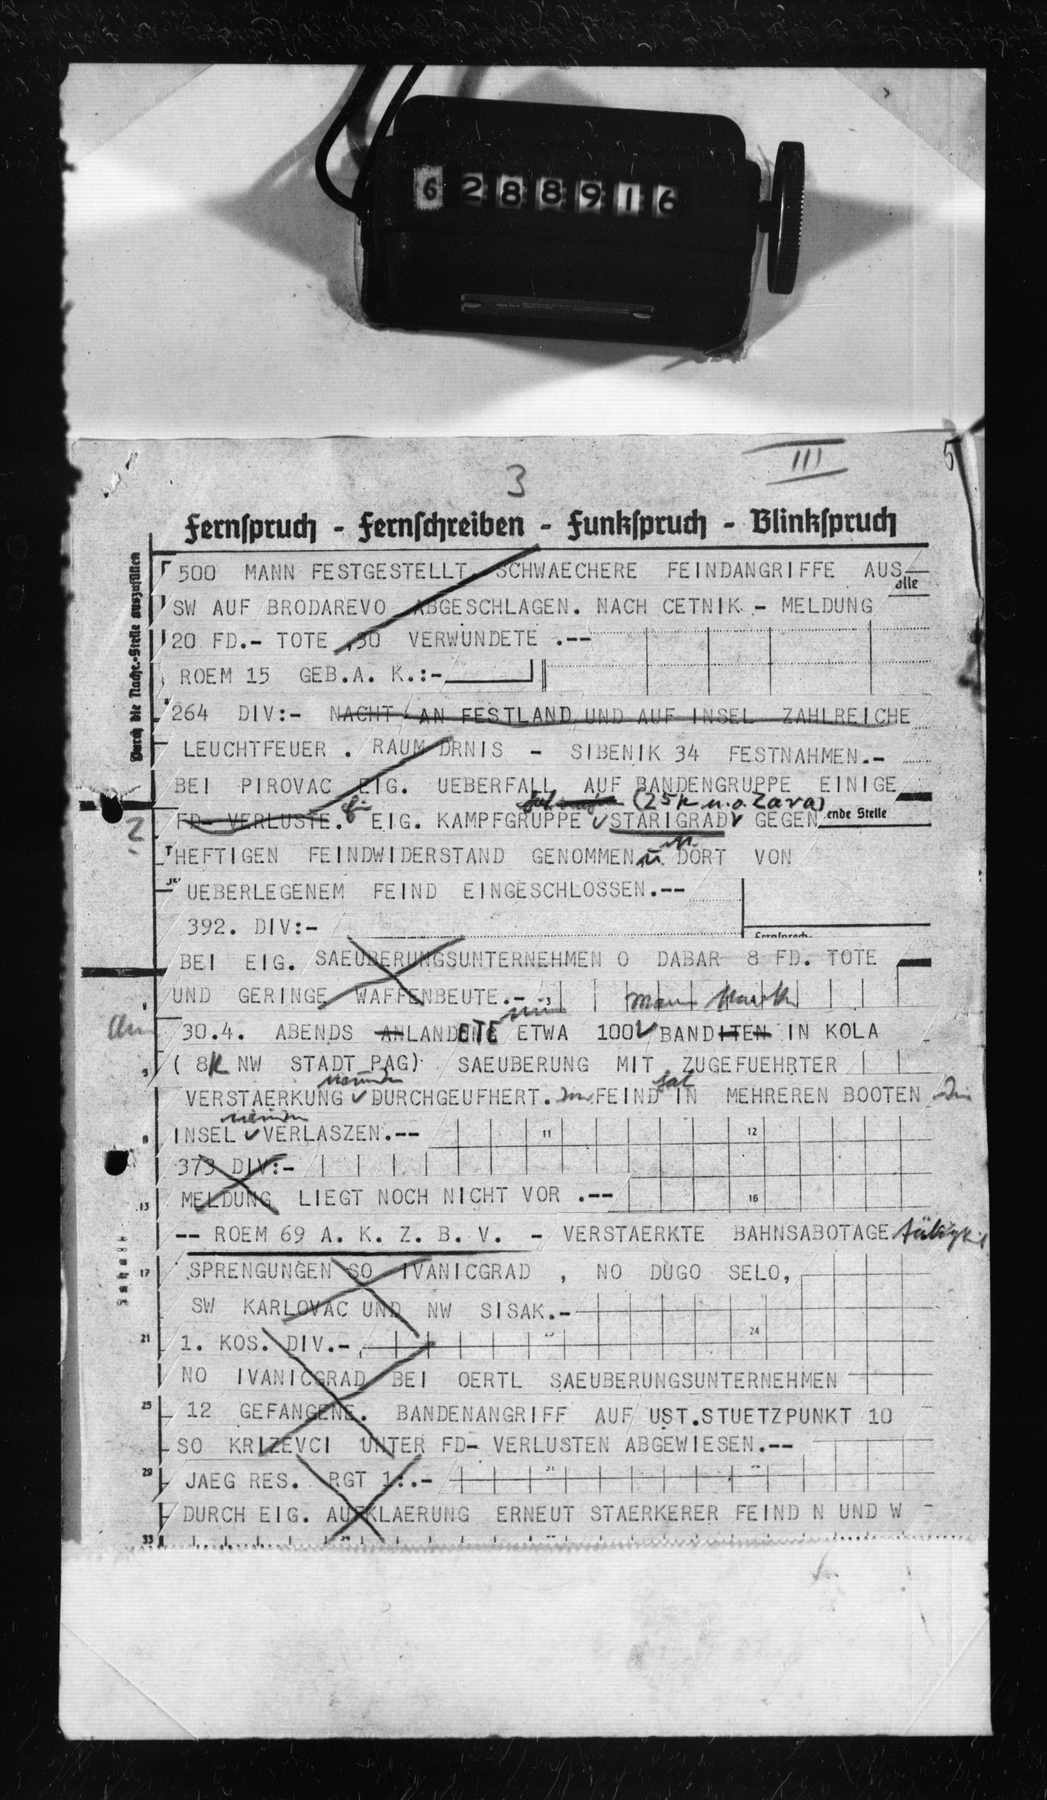 6288916
III
5
3
Fernspruch - Fernschreiben - Funkspruch - Blinkspruch
Durch die Nachr.-Stelle auszufüllen
500 MANN FESTGESTELLT. SCHWAECHERE FEINDANGRIFFE AUS
SW AUF BRODAREVO ABGESCHLAGEN. NACH CETNIK - MELDUNG
20 FD.- TOTE ,30 VERWUNDETE .--
ROEM 15 GEB.A. K.:-
264 DIV:- NACHT AN FESTLAND UND AUF INSEL ZAHLREICHE
LEUCHTFEUER . RAUM DRNIS - SIBENIK 34 FESTNAHMEN.-
BEI PIROVAC EIG. UEBERFALL AUF BANDENGRUPPE EINIGE
(25 k n.o. Zara)
FD- VERLUSTE. EIG. KAMPFGRUPPE STARIGRAD GEGEN
ende Stelle
2
HEFTIGEN FEINDWIDERSTAND GENOMMEN u. DORT VON
UEBERLEGENEM FEIND EINGESCHLOSSEN.--
392. DIV:-
BEI EIG. SAEUBERUNGSUNTERNEHMEN O DABAR 8 FD. TOTE
UND GERINGE WAFFENBEUTE.-
Am 30.4. ABENDS ANLANDETE ETWA 100 BANDITEN IN KOLA
( 8k NW STADT PAG) SAEUBERUNG MIT ZUGEFUEHRTER
VERSTAERKUNG DURCHGEUFHERT. FEIND hat IN MEHREREN BOOTEN die
INSEL VERLASZEN.--
11 12
373 DIV:-
MELDUNG LIEGT NOCH NICHT VOR .--
13 16
-- ROEM 69 A. K. Z. B. V. - VERSTAERKTE BAHNSABOTAGE
Inhalt
17 SPRENGUNGEN SO IVANICGRAD , NO DUGO SELO,
SW KARLOVAC UND NW SISAK.-
21 1. KOS. DIV.- 24
NO IVANICGRAD BEI OERTL SAEUBERUNGSUNTERNEHMEN
25 12 GEFANGENE. BANDENANGRIFF AUF UST.STUETZPUNKT 10
SO KRIZEVCI UNTER FD- VERLUSTEN ABGEWIESEN.--
29 JAEG RES. RGT 1:.-
DURCH EIG. AUFKLAERUNG ERNEUT STAERKERER FEIND N UND W
33